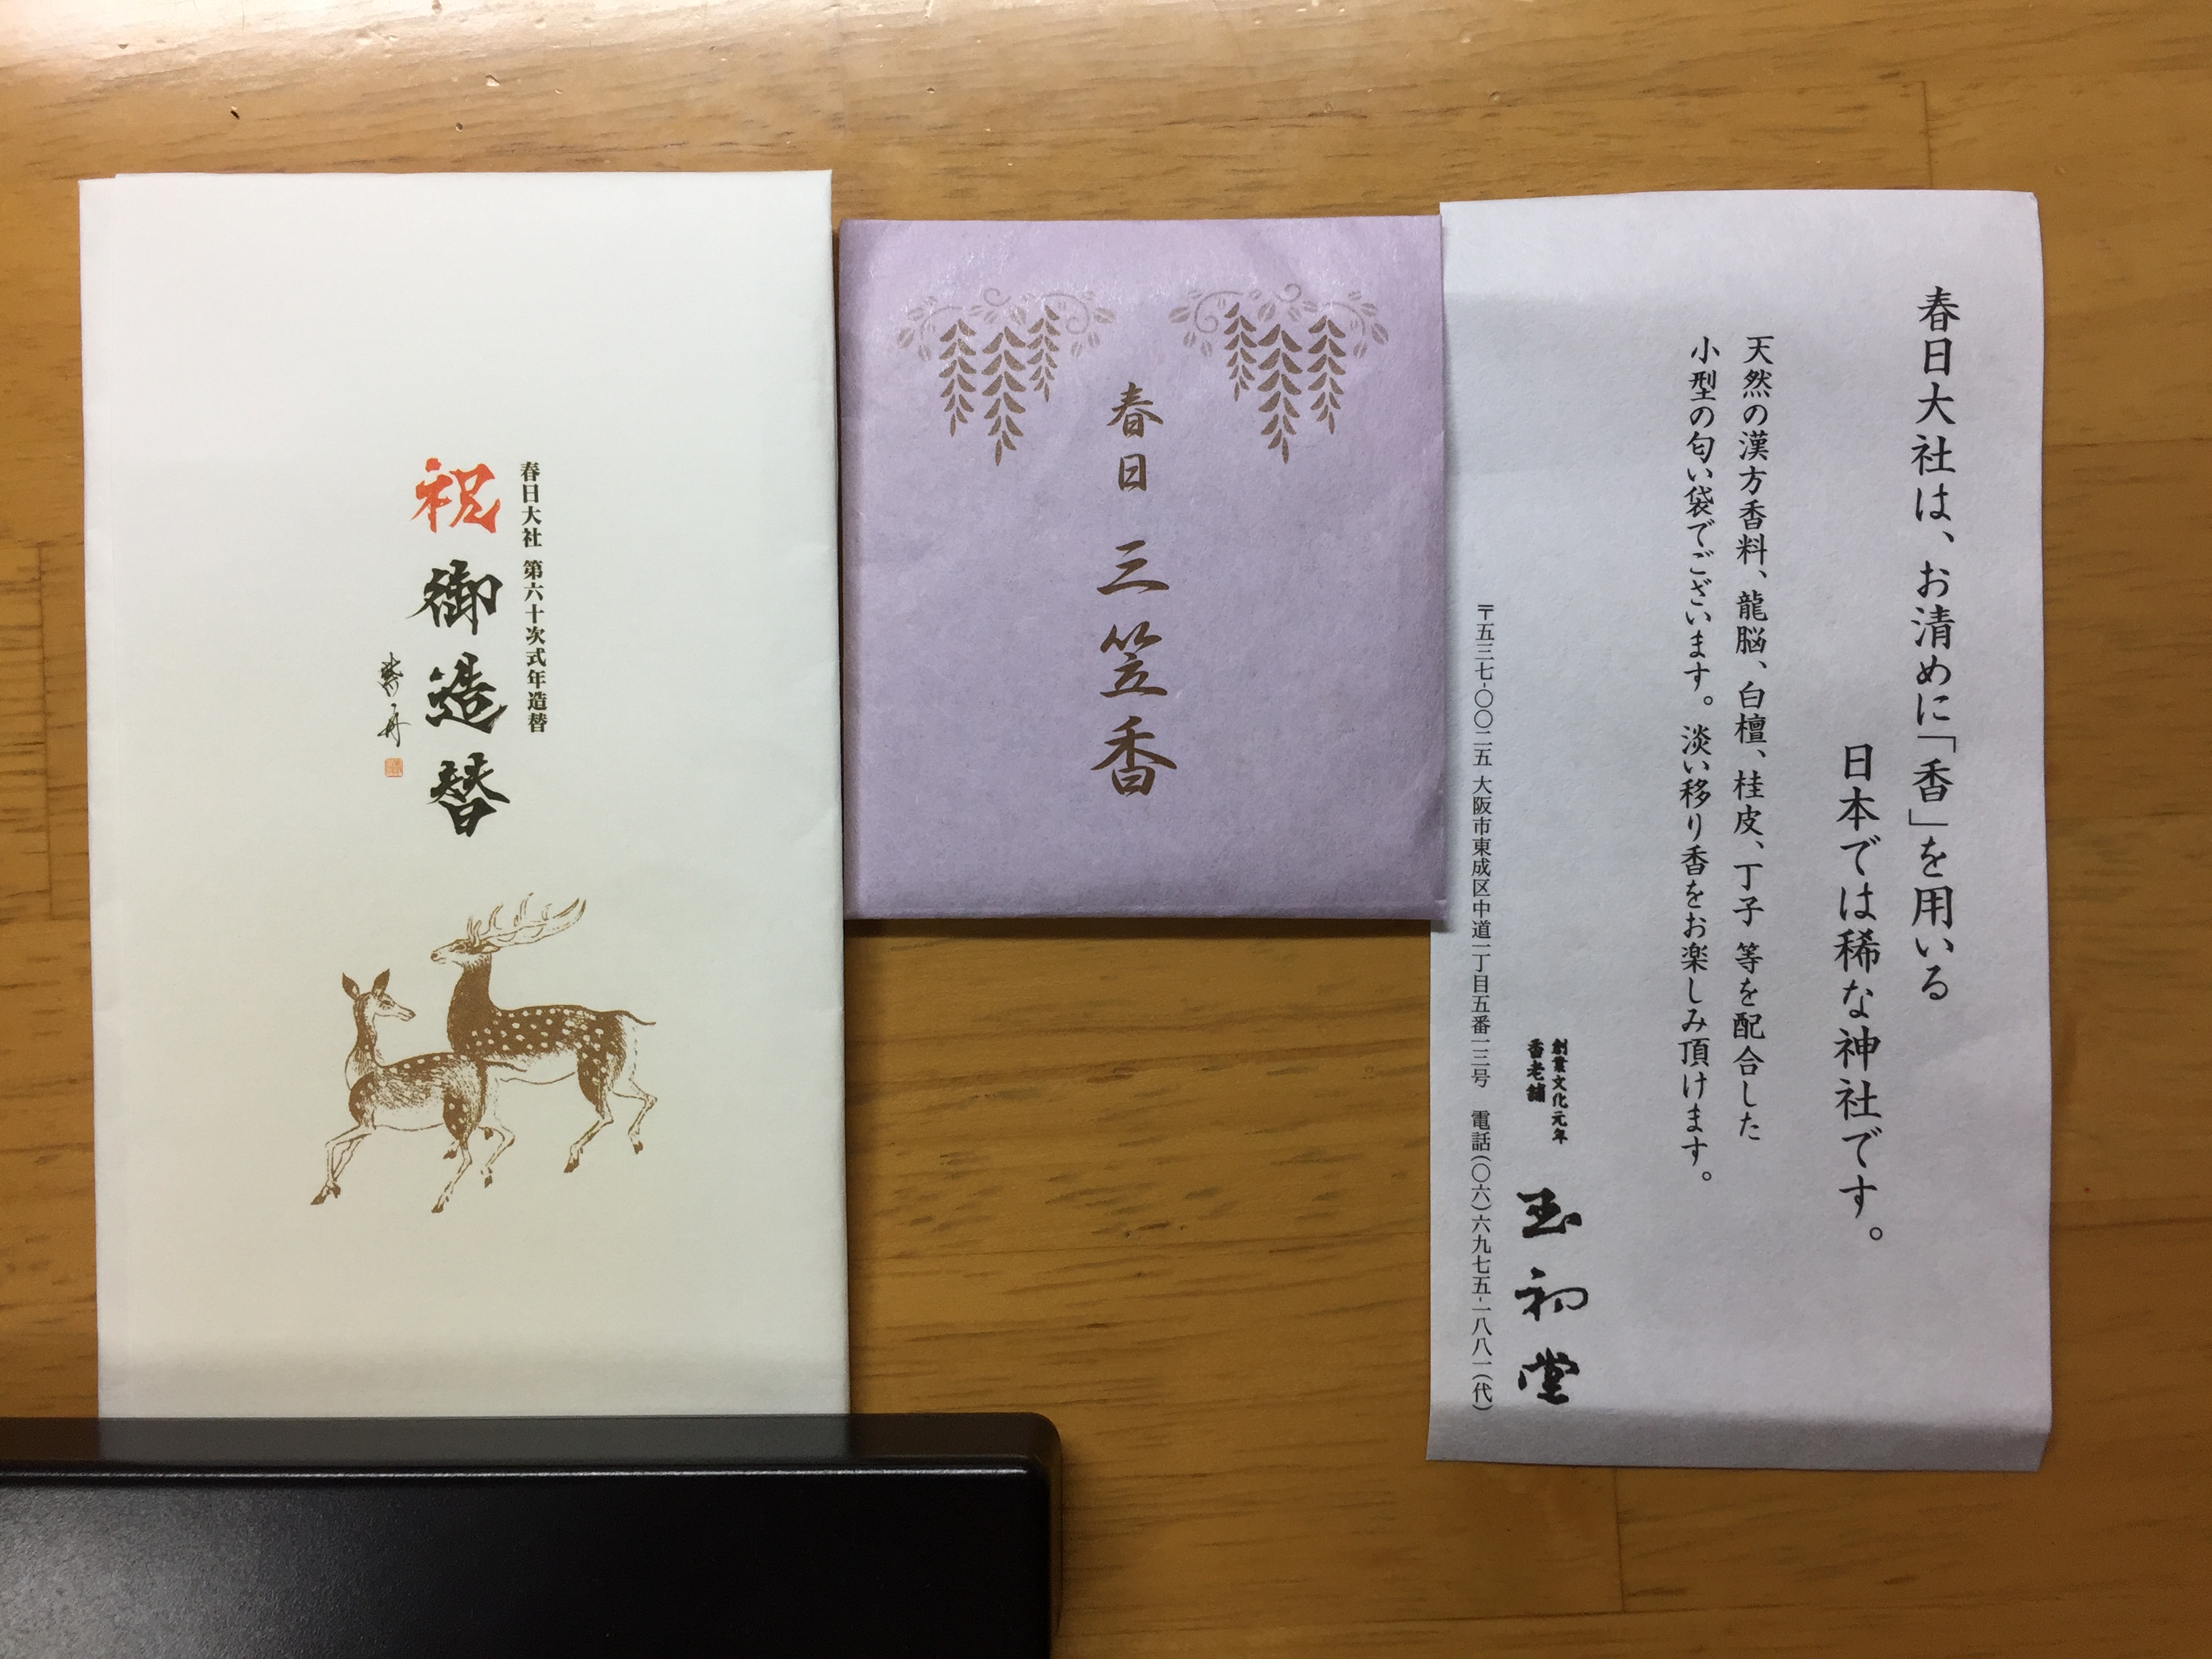 春日大社 第六十次式年造替
祝 御造替
紫舟
春日 三笠香
春日大社は、お清めに「香」を用いる
日本では稀な神社です。
天然の漢方香料、龍脳、白檀、桂皮、丁子 等を配合した
小型の匂い袋でございます。淡い移り香をお楽しみ頂けます。
創業文化元年
香老舗
玉初堂
〒五三七-〇〇二五 大阪市東成区中道一丁目五番一三号 電話(〇六)六九七五-一八八一(代)